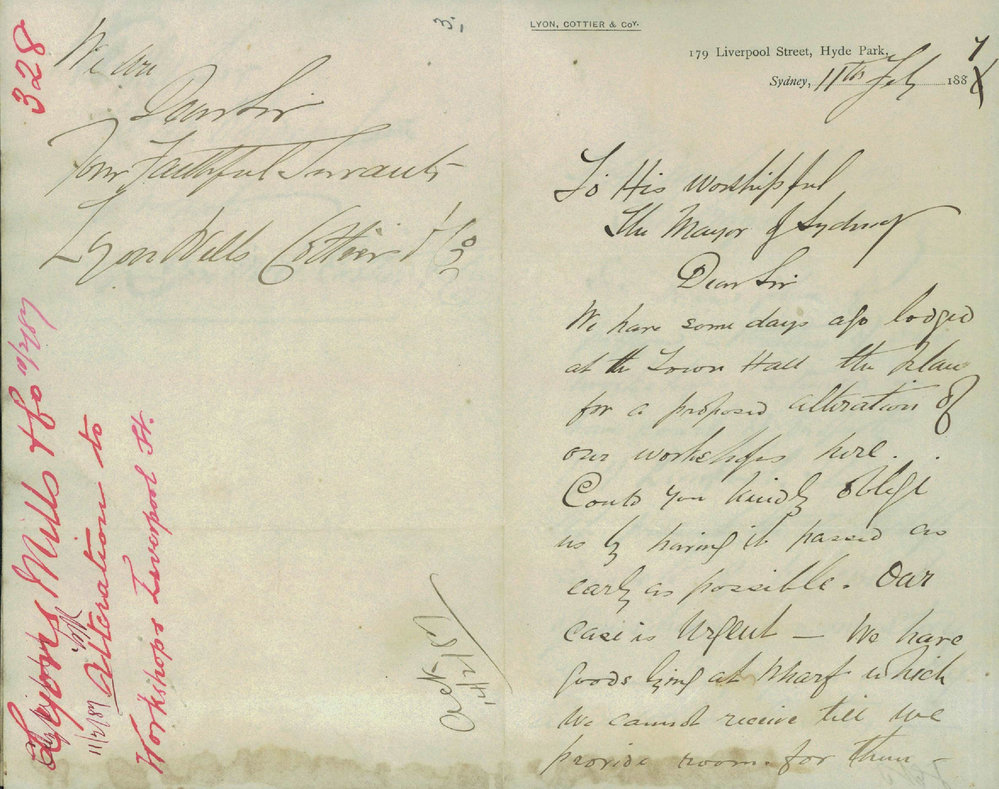 LYON, COTTIER & Coy.
179 Liverpool Street, Hyde Park,
Sydney, 11th Feby 1887
To His Worshipful
The Mayor of Sydney
Dear Sir
We have some days ago lodged
at the Town Hall the plans
for a proposed alteration of
our workshops here.
Could you kindly oblige
us by having it passed as
early as possible. Our
case is Urgent — We have
goods lying at Wharf which
we cannot receive till we
provide room for them
3.
We are
Dear Sir
Your Faithful Servants
Lyon Wells Cottier & Co
Ack
14/2/87
328
Lyons Mills & Co 10/2/87
Alteration to
Workshops Liverpool St.
11/2/87